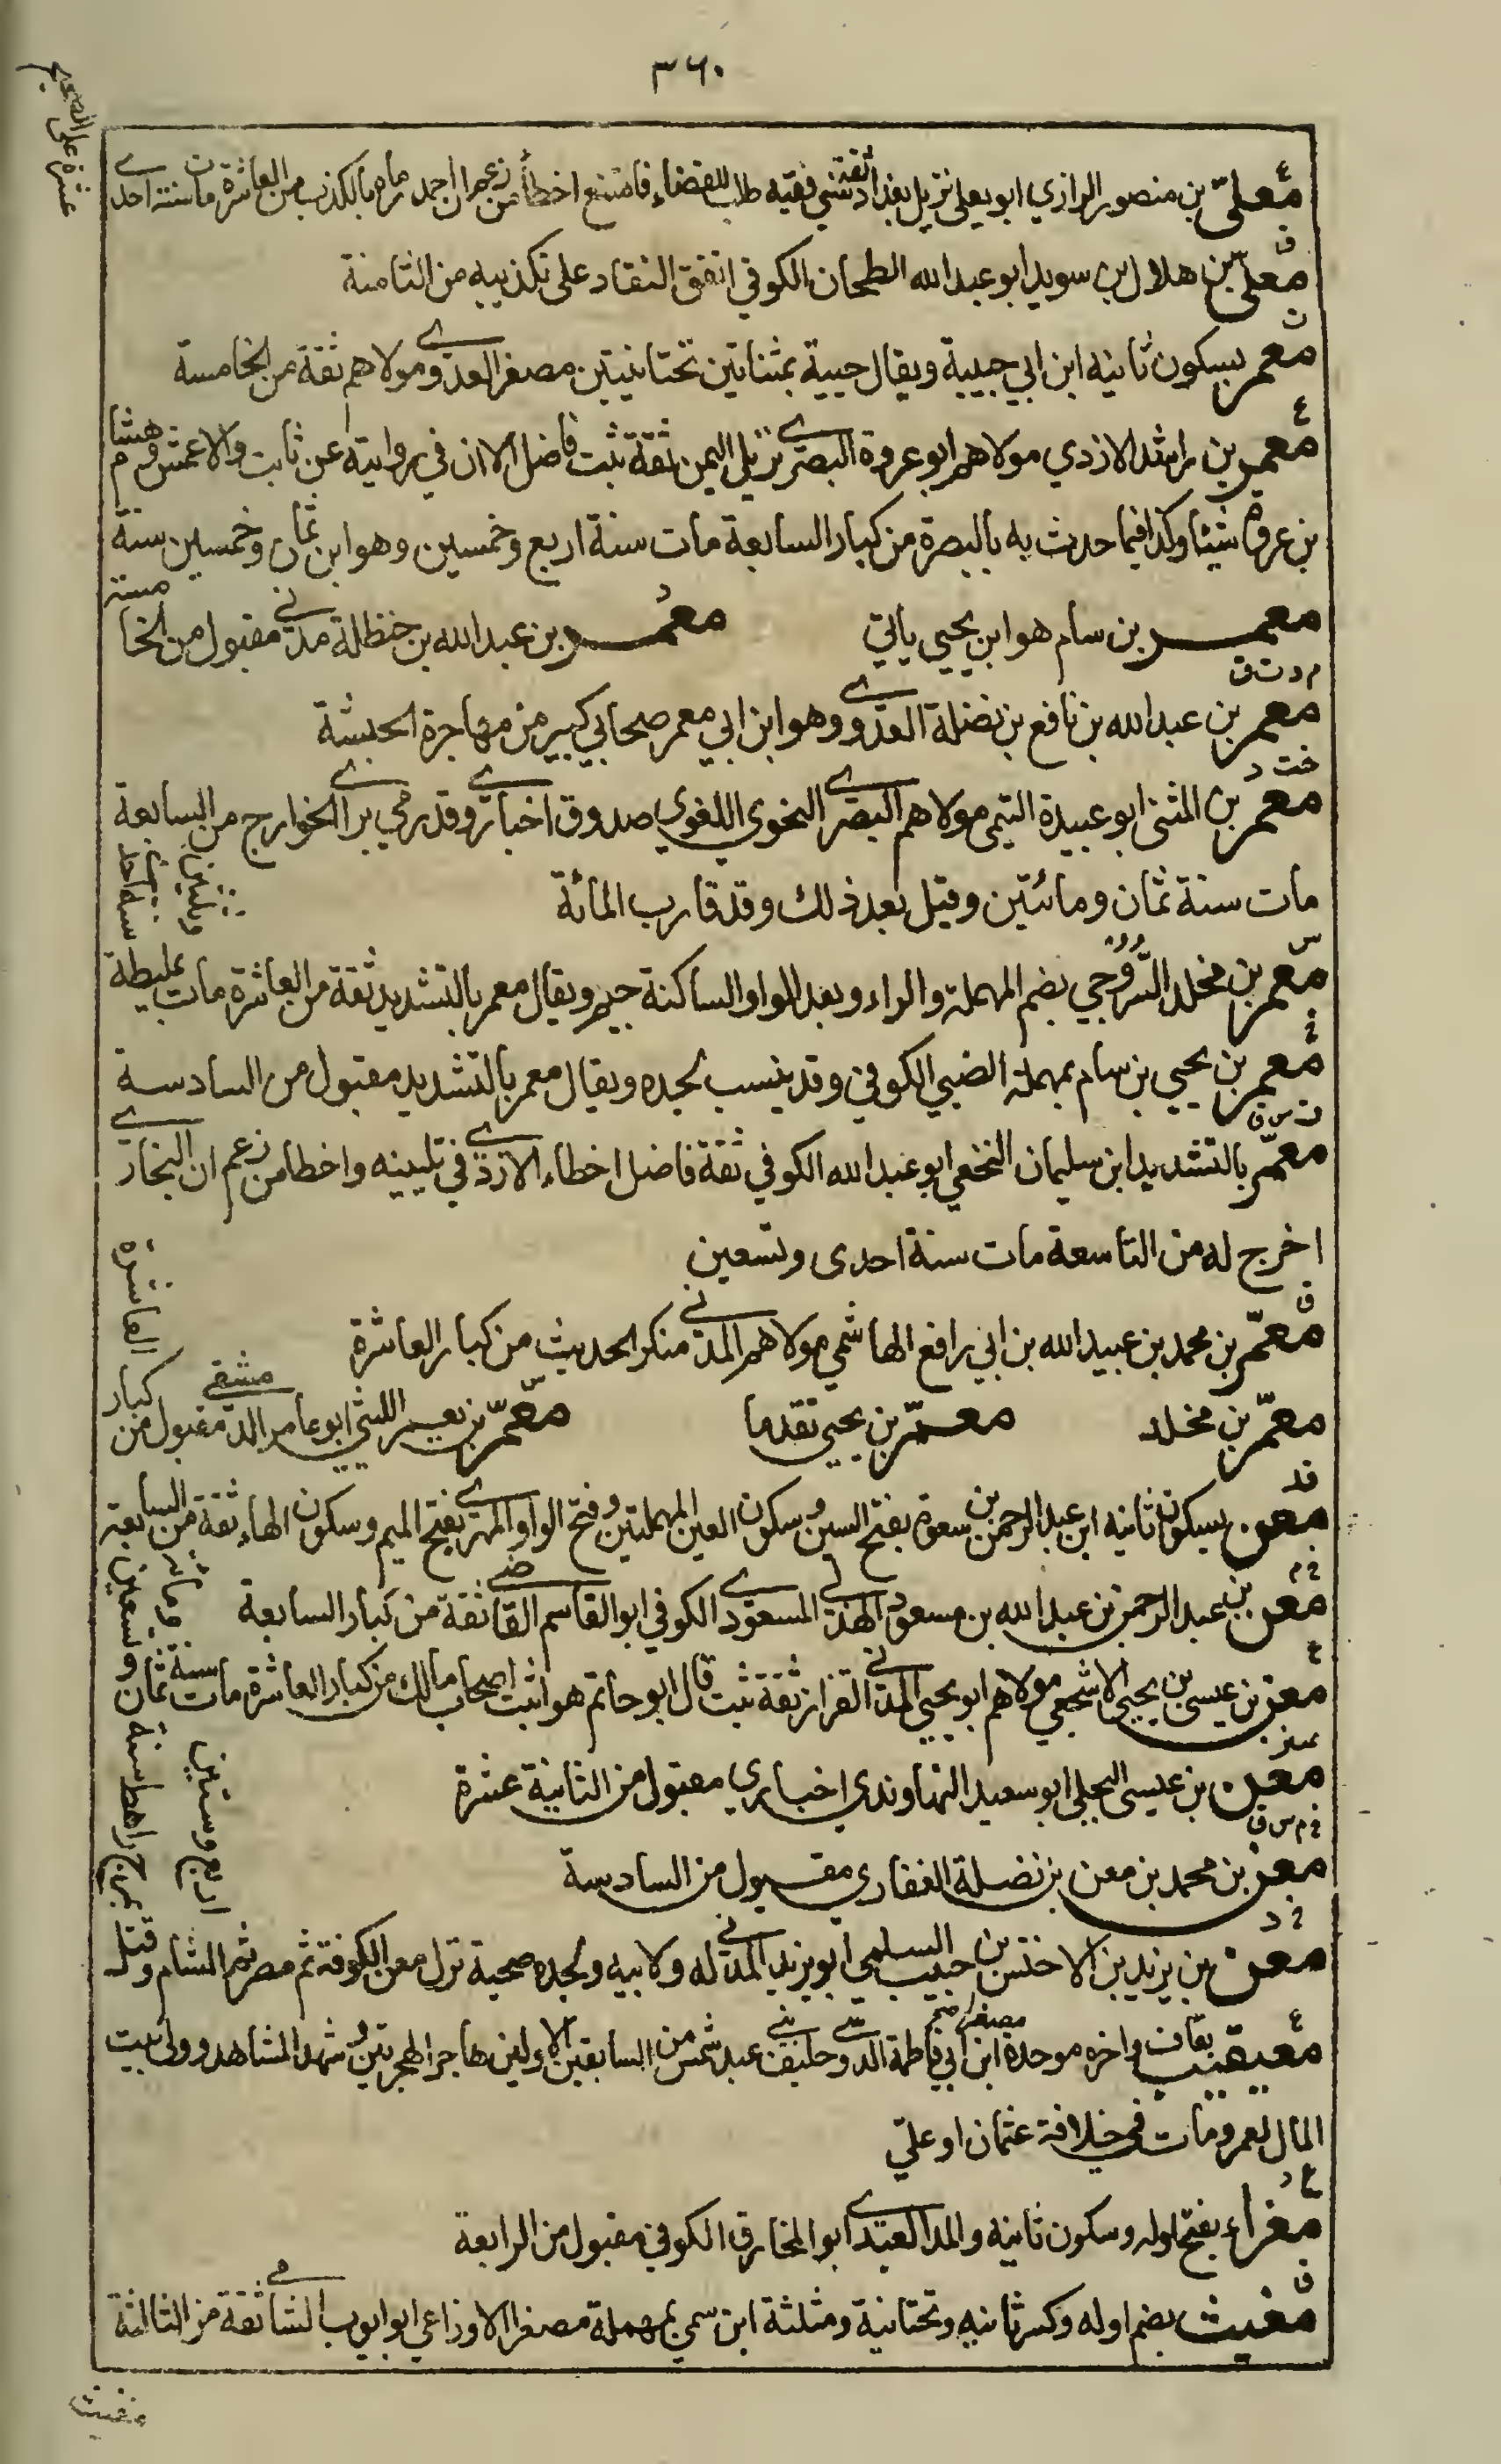 ٣٦٠
ع
معلى بن منصور الرازي ابو يعلى نزيل بغداد ثقة سني فقيه طلب للقضاء فامتنع اخطأ من زعم ان احمد رماه بالكذب من العاشرة مات سنة احدى
عشرة على الصحيح
ق
معلى بن هلال بن سويد ابو عبد الله الطحان الكوفي اتفق النقاد على تكذيبه من الثامنة
ت
معمر بسكون ثانيه ابن ابي حبيبة ويقال حيية بمثناتين تحتانيتين مصغر العدوي مولاهم ثقة من الخامسة
ع
معمر بن راشد الازدي مولاهم ابو عروة البصري نزيل اليمن ثقة ثبت فاضل الا ان في روايته عن ثابت والاعمش وهشام
بن عروة شيئا وكذا فيما حدث به بالبصرة من كبار السابعة مات سنة اربع وخمسين وهو ابن ثمان وخمسين سنة
معمر بن سام هو ابن يحيى ياتي
د
معمر بن عبد الله بن حنظلة مدني مقبول من الخامسة
م د ت ق
معمر بن عبد الله بن نافع بن نضلة العدوي وهو ابن ابي معمر صحابي كبير من مهاجرة الحبشة
خت د
معمر بن المثنى ابو عبيدة التيمي مولاهم البصري النحوي اللغوي صدوق اخباري وقد رمي براي الخوارج من السابعة
مات سنة ثمان ومائتين وقيل بعد ذلك وقد قارب المائة
س
معمر بن مخلد السروجي بضم المهملة والراء وبعد الواو الساكنة جيم ويقال معمر بالتشديد ثقة من العاشرة مات بملطية
سنة احدى وثلثين
خ
معمر بن يحيى بن سام بمهملة الضبي الكوفي وقد ينسب لجده ويقال معمر بالتشديد مقبول من السادسة
ت س ق
معمر بالتشديد ابن سليمان النخعي ابو عبد الله الكوفي ثقة فاضل اخطاء الازدي في تليينه واخطا من زعم ان البخاري
اخرج له من التاسعة مات سنة احدى وتسعين
ق
معمر بن محمد بن عبيد الله بن ابي رافع الهاشمي مولاهم المدني منكر الحديث من كبار العاشرة
معمر بن مخلد
معمر بن يحيى تقدما
س
معمر بن يعمر الليثي ابو عامر الدمشقي مقبول من
كبار العاشرة
قد
معن بسكون ثانيه ابن عبد الرحمن بن سعوة بفتح السين وسكون العين المهملتين وفتح الواو المهري بفتح الميم وسكون الهاء ثقة من السابعة
خ م
معن بن عبد الرحمن بن عبد الله بن مسعود الهذلي المسعودي الكوفي ابو القاسم القاضي ثقة من كبار السابعة
ع
معن بن عيسى بن يحيى الاشجعي مولاهم ابو يحيى المدني القزاز ثقة ثبت قال ابو حاتم هو اثبت اصحاب مالك من كبار العاشرة مات سنة ثمان
وتسعين ومائة
تمييز
معن بن عيسى البجلي ابو سعيد النهاوندي اخباري مقبول من الثانية عشرة
خ م س ق
معن بن محمد بن معن بن نضلة الغفاري مقبول من السادسة
خ د
معن بن يزيد بن الاخنس بن حبيب السلمي ابو يزيد المدني له ولابيه ولجده صحبة نزل معن الكوفة ثم مصر ثم الشام وقتل
بمرج راهط سنة اربع وستين
ع
معيقيب بقاف واخره موحدة مصغر ابن ابي فاطمة الدوسي حليف بني عبد شمس من السابقين الاولين هاجر الهجرتين وشهد المشاهد وولي بيت
المال لعمر ومات في خلافة عثمان او علي
بخ د
مغراء بفتح اوله وسكون ثانيه والمد العبدي ابو المخارق الكوفي مقبول من الرابعة
ق
مغيث بضم اوله وكسر ثانيه وتحتانية ومثلثة ابن سمي بمهملة مصغر الاوزاعي ابو ايوب الشامي ثقة من الثالثة
مغيث